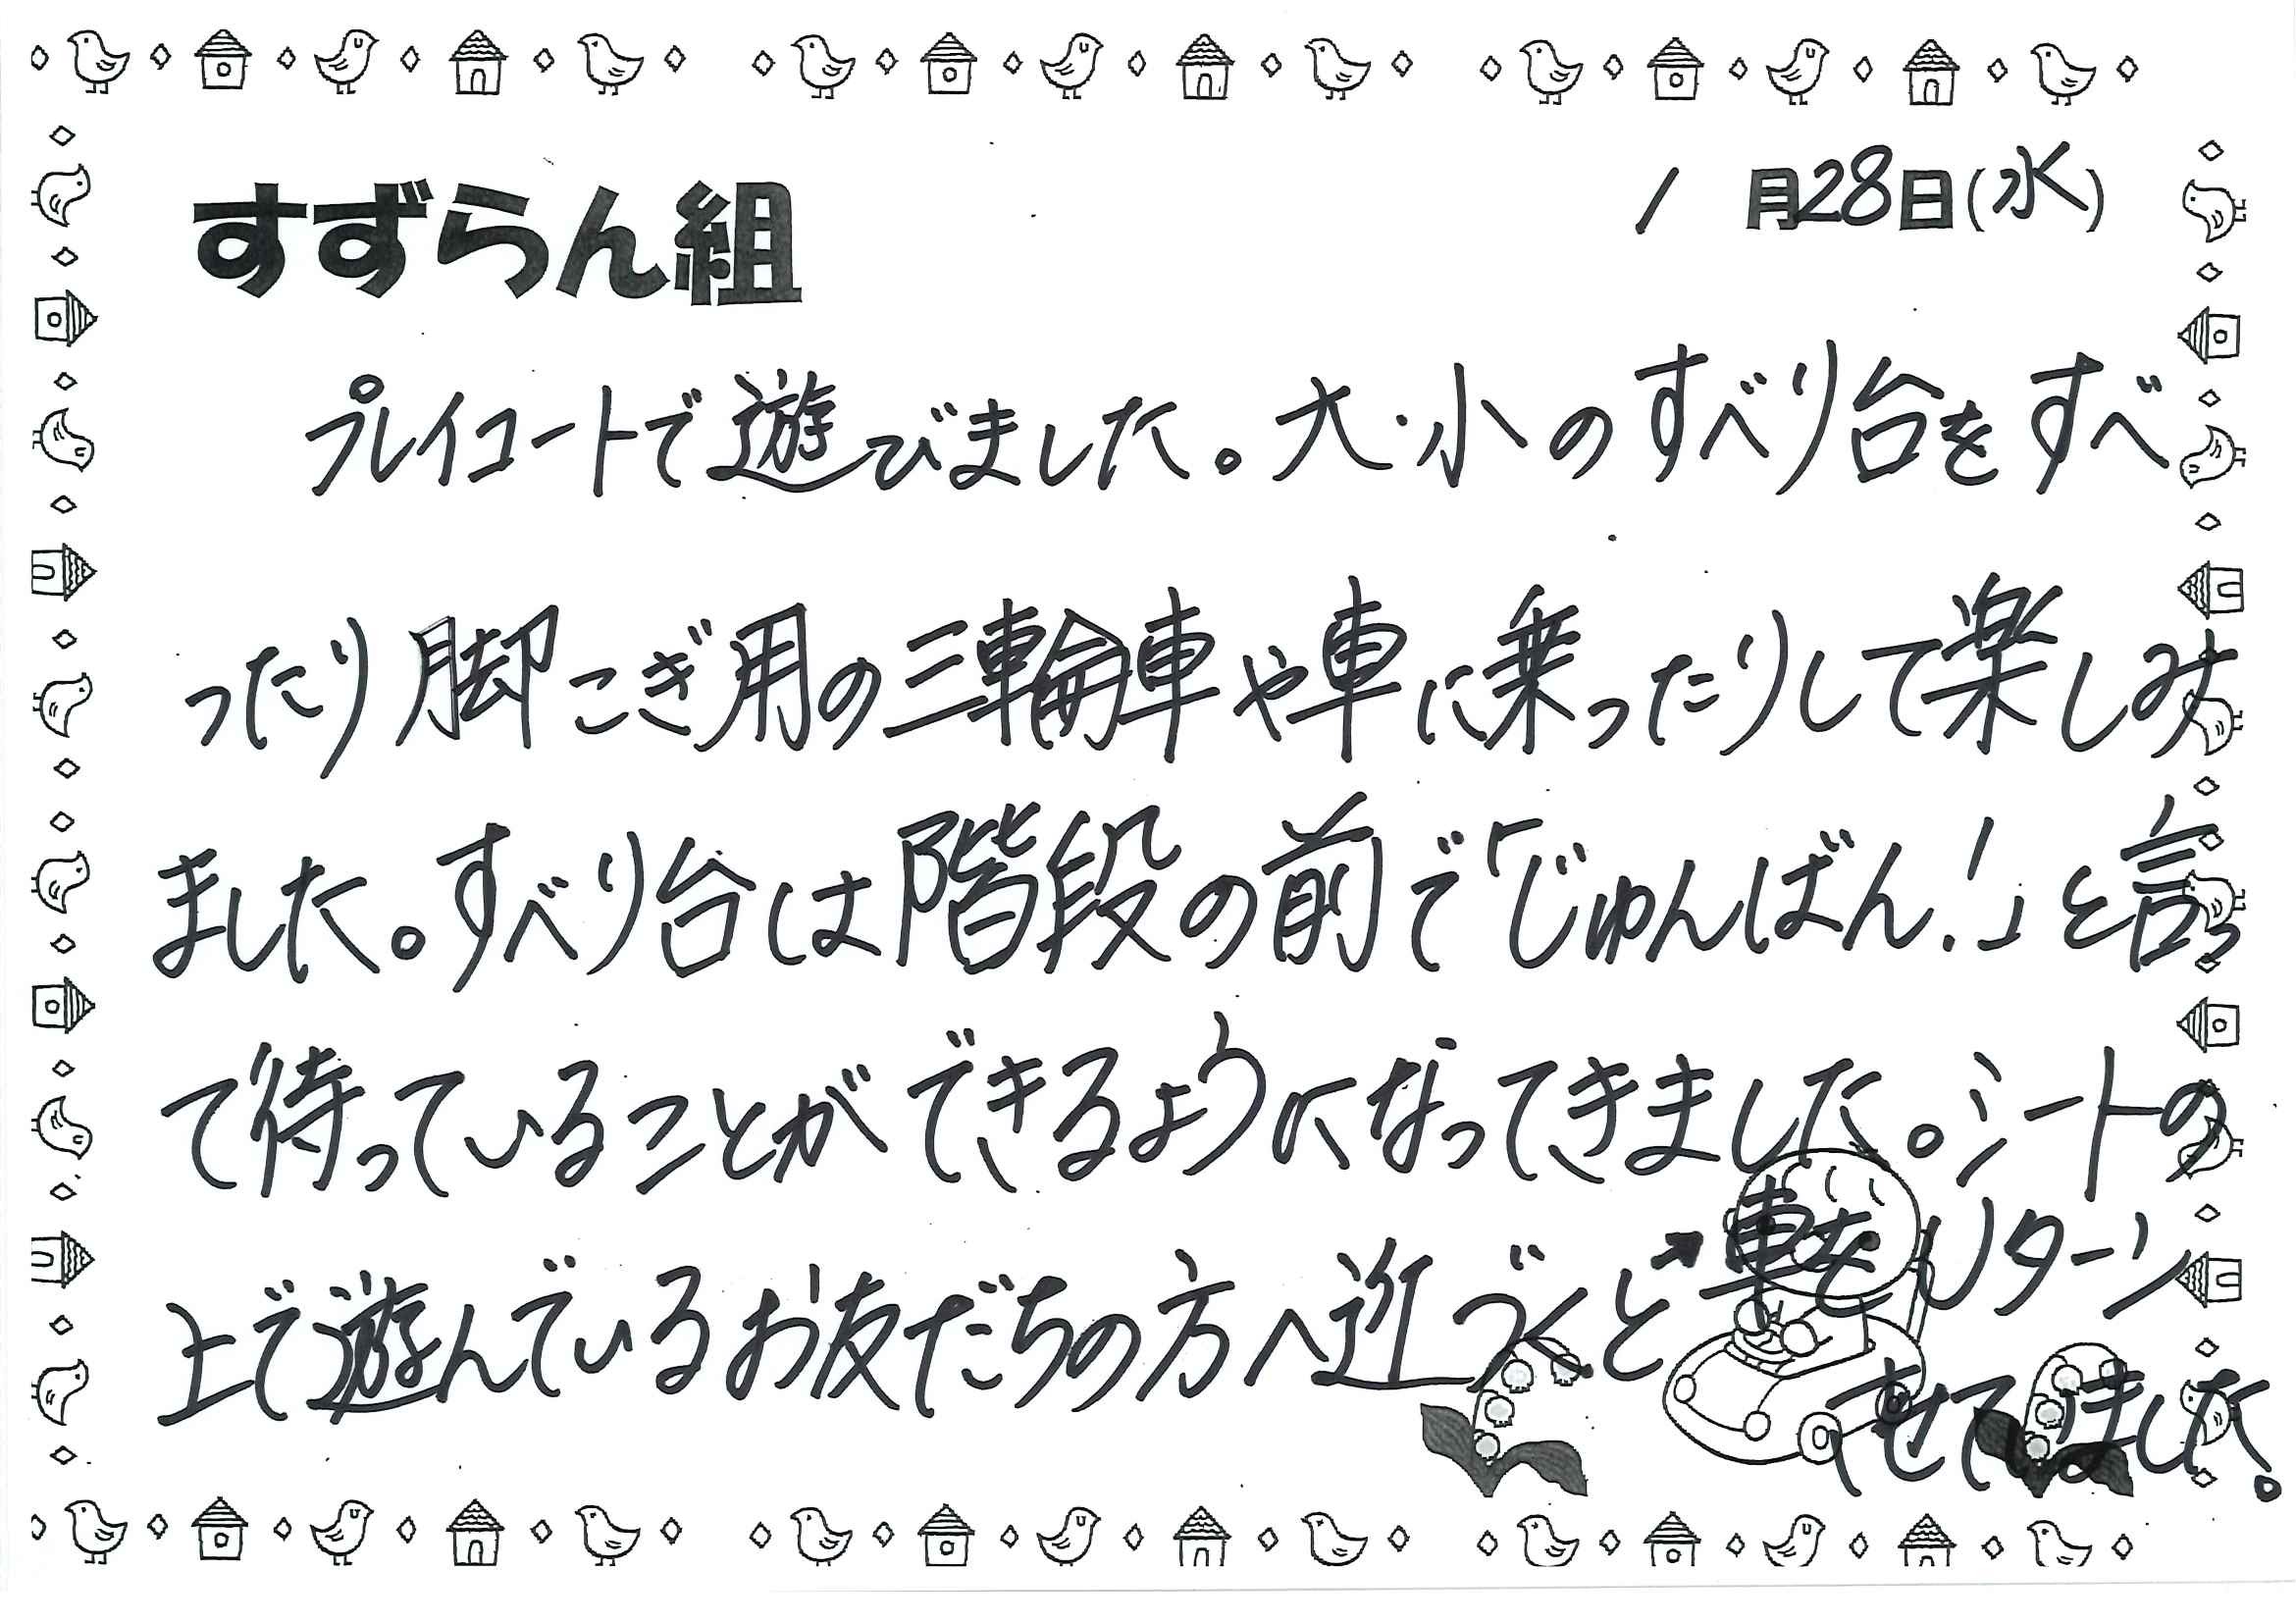 すずらん組
1月28日(水)
プレイコートで遊びました。大・小のすべり台をすべ
ったり脚こぎ用の三輪車や車に乗ったりして楽しみ
ました。すべり台は階段の前で「じゅんばん!」と言っ
て待っていることができるようになってきました。シートの
上で遊んでいるお友だちの方へ近づくと→車をUターン
させていました。